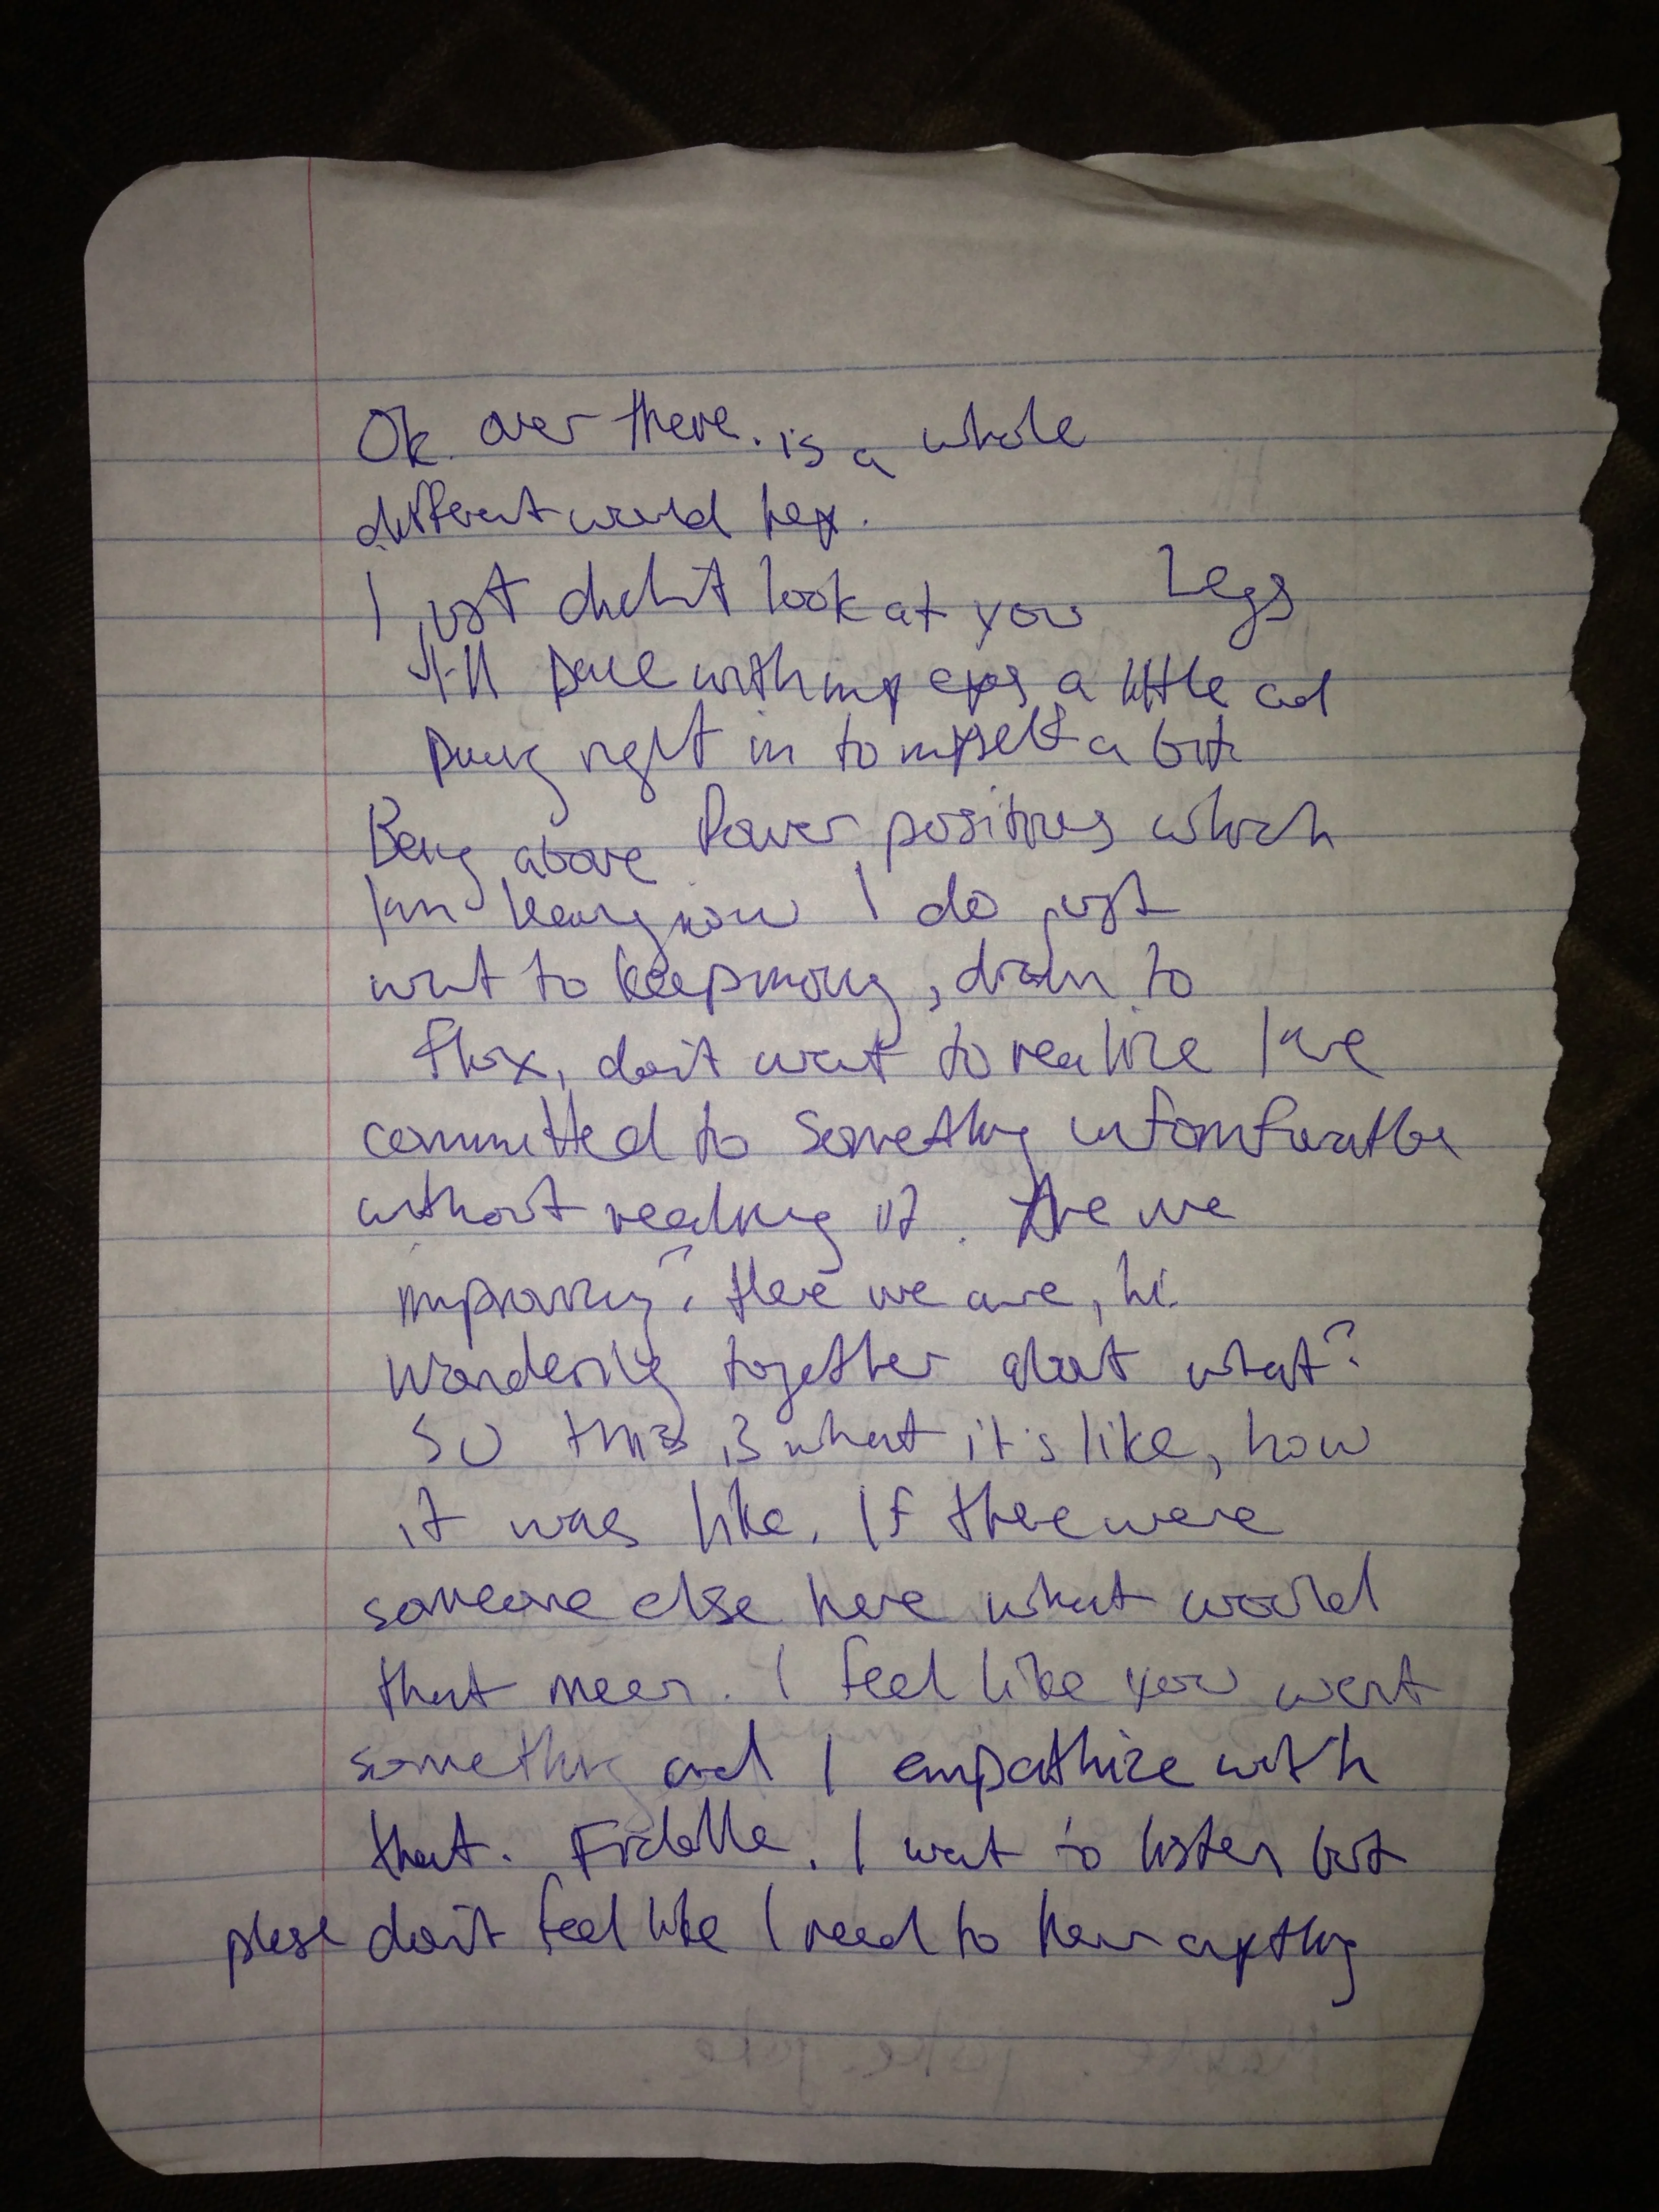 Ok. over there. is a whole
different world hey.
I just didn't look at you Legs
still with my eyes a little and
right in to myself a bit
Being above Power positions which
I'm now I do just
want to keep moving, to
don't want to realize I've
committed to something
without realizing it. Are we
improving? Here we are, hi.
Wondering together about what?
So this is what it's like, how
it was like. If there were
someone else here what would
that mean. I feel like you want
something and I empathize with
that. I want to listen but
please don't feel like I need to hear anything